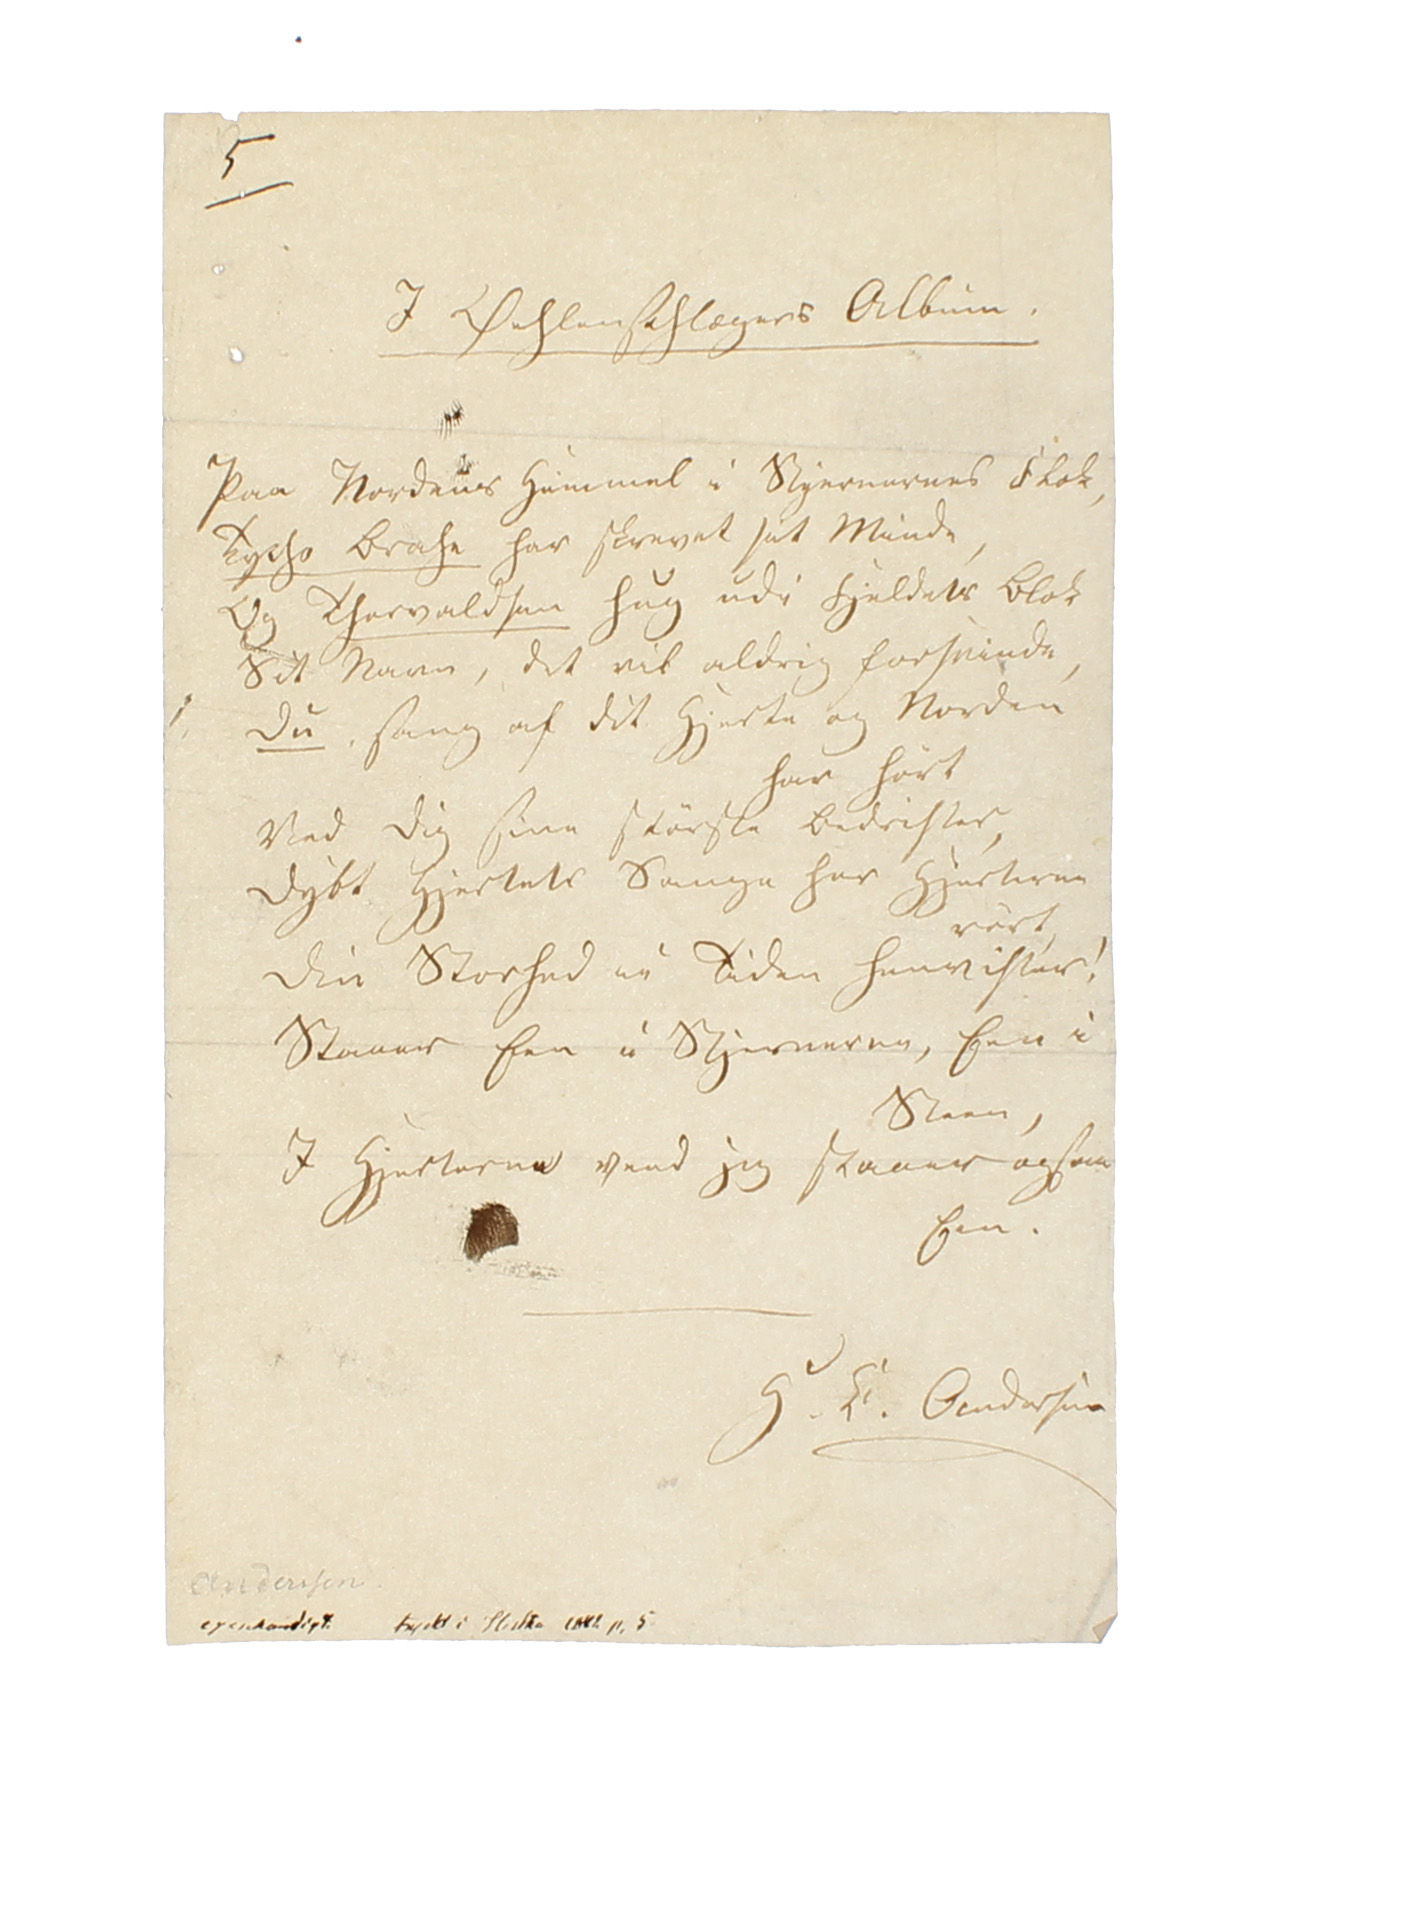 5
I Oehlenschlægers Album.
Paa Nordens Himmel i Stjernernes Flok,
Tycho Brahe har skrevet sit Minde,
Og Thorvaldsen hug udi Fjeldets Blok
Sit Navn, det vil aldrig forsvinde,
Du, sang af dit Hjerte og Norden
har hört
Ved Dig sine störste Bedrifter,
Dybt Hjertets Sange har Hjerterne
rört,
Din Storhed ei Tiden henvifter!
Staaer Een i Stjernerne, Een i
Steen,
I Hjerterne veed jeg staaer ogsaa
Een.
H. C. Andersen
Anderssen.
egenhændigt. trykt i p. 5